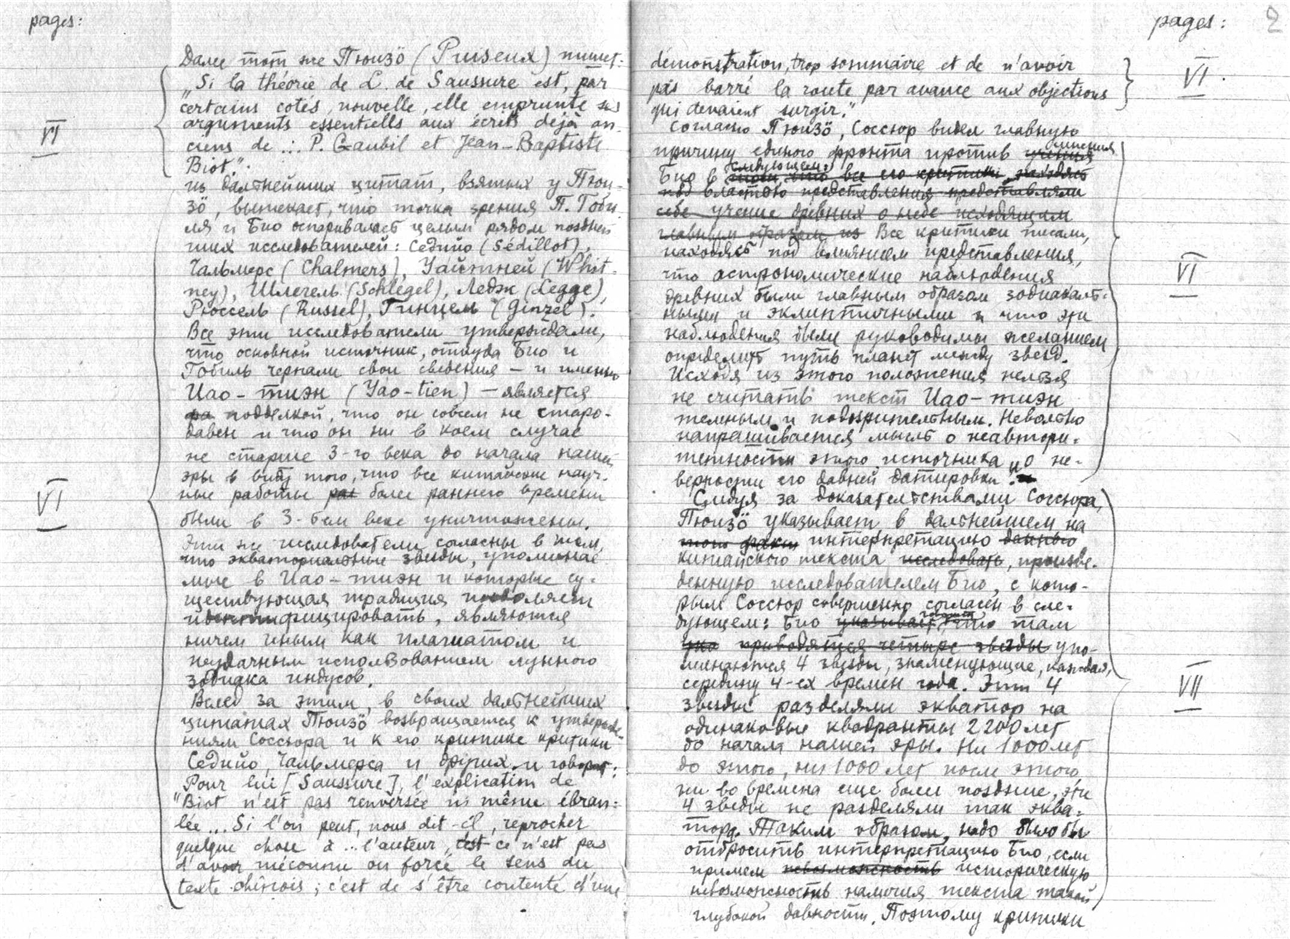 pages:
Далее тот же Пюизö (Puiseux) пишет:
"Si la théorie de L. de Saussure est, par
certains cotés, nouvelle, elle emprunte ses
arguments essentiells aux écrits déjà an-
ciens de ... P. Gaubil et Jean-Baptiste
Biot".
VI
Из дальнейших цитат, взятых у Пюи-
зö, вытекает, что точка зрения П. Гоби-
ля и Био оспаривает целым рядом поздней
ших исследователей: Седийо (Sédillot),
Чальмерс (Chalmers), Уайтней (Whit-
ney), Шлегель (Schlegel), Ледж (Legge),
Рюссель (Russel), Гинцель (Ginzel).
Все эти исследователи утверждали,
что основной источник, откуда Био и
Гобиль черпали свои сведения — и именно
Иао-тиэн (Yao-tien) — является
подделкой, что он совсем не старо-
давен и что он ни в коем случае
не старше 3-го века до начала нашей
эры в виду того, что все китайские науч-
ные работы раз более раннего времени
были в 3-бем веке уничтожены.
Эти же исследователи согласны в том,
что экваториальные звезды, упоминае
мые в Иао-тиэн и которые су-
ществующая традиция позволяет
идентифицировать, являются
ничем иным как плагиатом и
неудачным использованием лунного
зодиака индусов.
VI
Вслед за этим, в своих дальнейших
цитатах Пюизö возвращается к утвержде-
ниям Соссюра и к его критике критики
Седийо Чальмерса и других и говорит:
Pour lui [Saussure], l'explication de
"Biot n'est pas renversée ni même ébran-
lée ... Si l'on peut, nous dit-il, reprocher
quelque chose à ... l'auteur, c'est ce n'est pas
d'avoir méconnu ou forcé le sens du
texte chinois; c'est de s'être contenté d'une
pages: 2
démonstration, trop sommaire et de n'avoir
pas barré la route par avance aux objections
qui devaient surgir."
VI
Согласно Пюизö, Соссюр видел главную
причину единого фронта против учения мнения
Био в следующем: что все его критики, находясь
под властью представления представляли
себе учение древних о небе исходящим
главным образом из Все критики писали,
находясь под влиянием представления,
что астрономические наблюдения
древних были главным образом зодиакаль-
ными и эклиптичными и что эти
наблюдения были руководимы желанием
определить путь планет между звезд.
Исходя из этого положения нельзя
не считать текст Иао-тиэн
темным и подозрительным. Невольно
напрашивается мысль о неавтори-
тетности этого источника и о не-
верности его давней датировки.
VI
Следуя за доказательствами Соссюра,
Пюизö указывает в дальнейшем на
этого факт интерпретацию данного
китайского текста исследовать, произве-
денную исследователем Био, с кото-
рым Соссюр совершенно согласен в сле-
дующем: Био указывает, что там
приводятся четыре звезды упо-
минаются 4 звезды, знаменующие, каждая,
середину 4-ех времен года. Эти 4
звезды разделяли экватор на
одинаковые квадранты 2200 лет
до начала нашей эры. Ни 1000 лет
до этого, ни 1000 лет после этого,
ни во времена еще более поздние, эти
4 звезды не разделяли так эква-
тор. Таким образом, надо было бы
отбросить интерпретацию Био, если
примем невозможность историческую
невозможность наличия текста такой
глубокой давности. Поэтому критики
VII